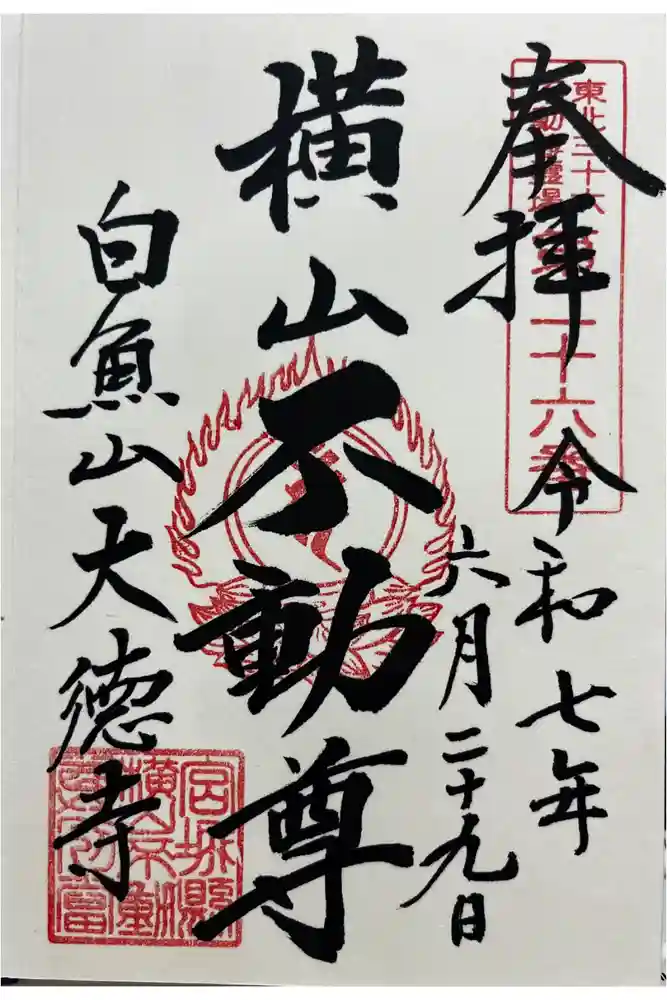 奉拝
東北三十六
動尊靈場
第二十六番
令和七年
六月二十九日
横山不動尊
白魚山天徳寺
宮城縣
横山不動